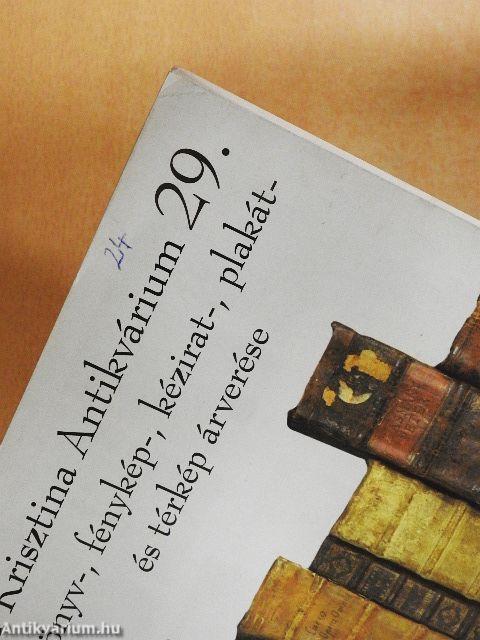 Krisztina Antikvárium 29.
önyv-, fénykép-, kézirat-, plakát-
és térkép árverése
24
Antikvárium.hu